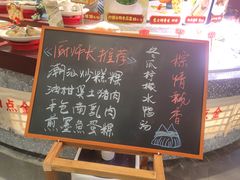 《厨师长推荐》
潮汕炒糕粿
油柑煲土猪肉
手包南乳肉
煎墨鱼蛋粿
冬瓜柠檬水鸭汤
粽情飘香